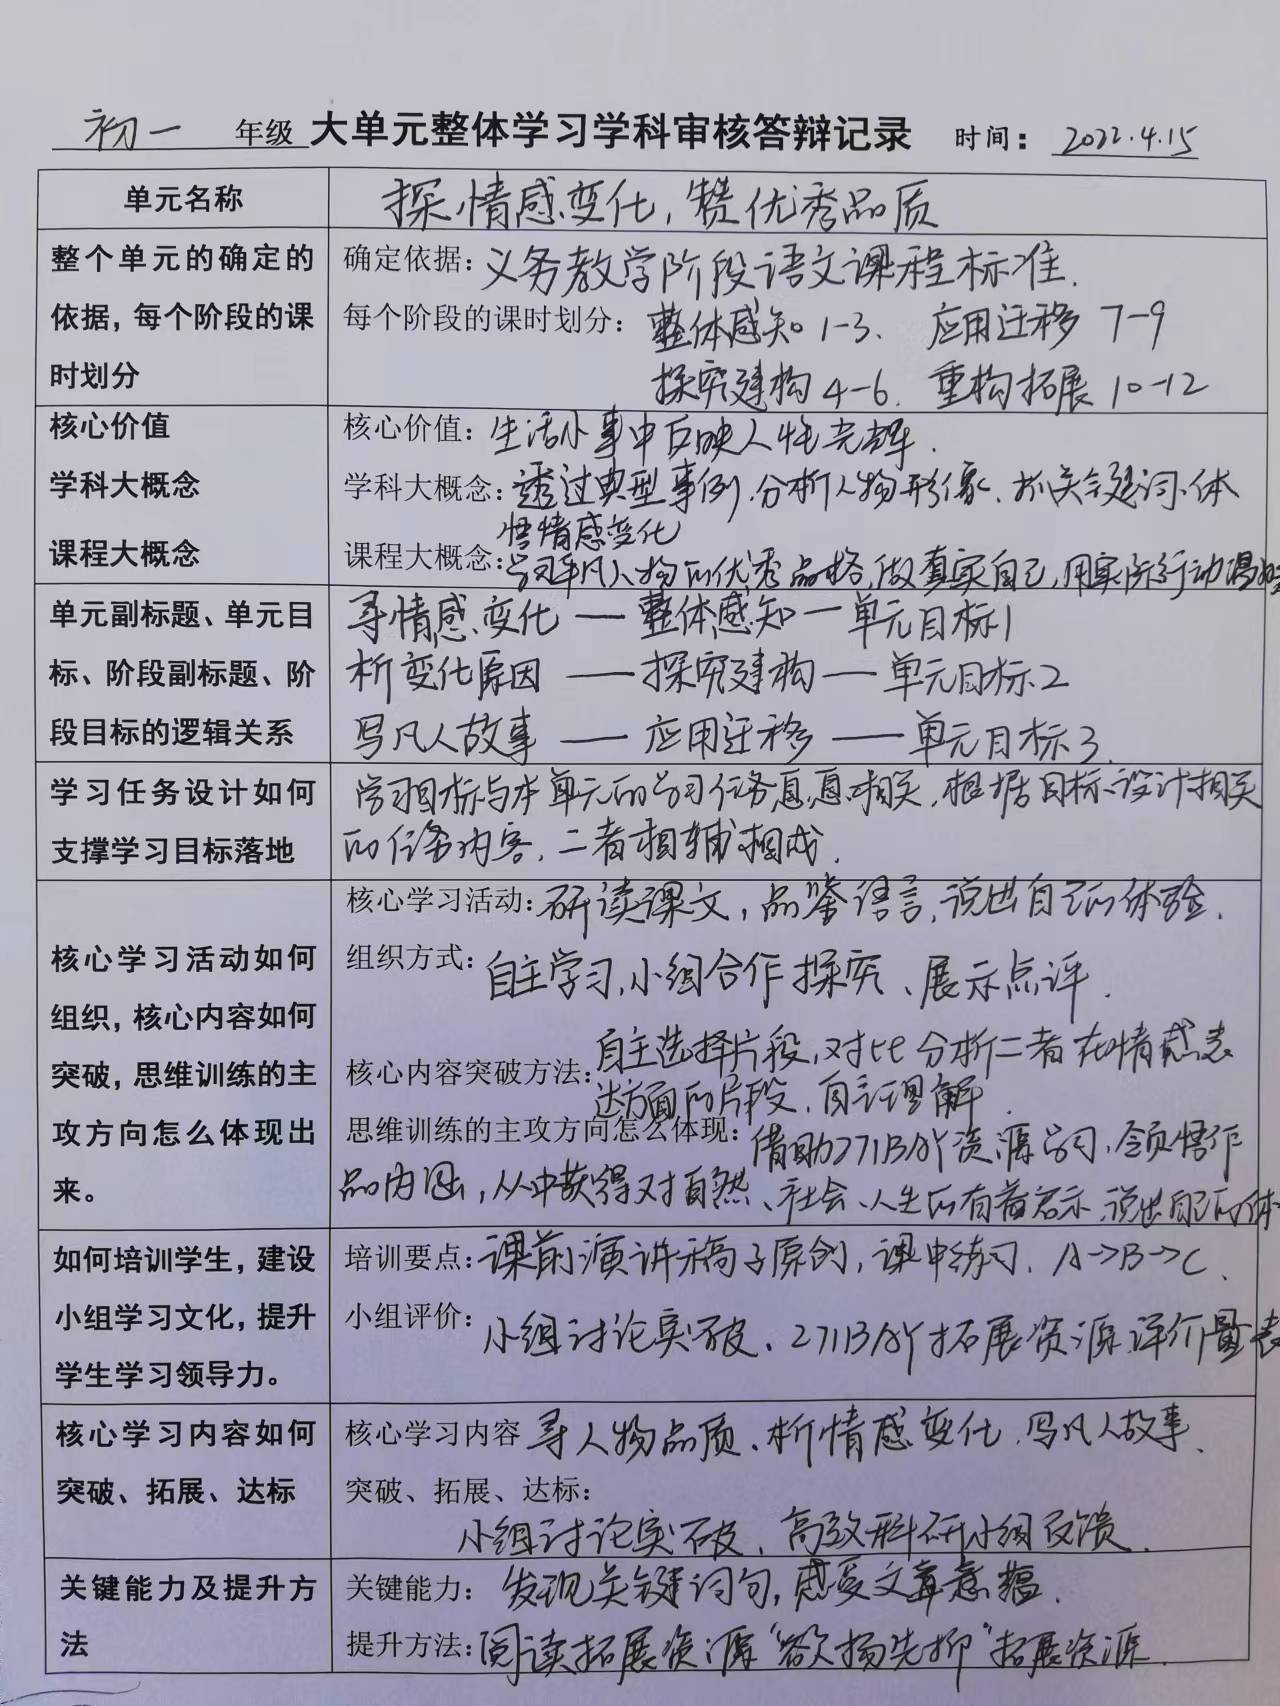 初一 年级 大单元整体学习学科审核答辩记录 时间：2022.4.15
单元名称 探情感变化，赞优秀品质
整个单元的确定的依据，每个阶段的课时划分
确定依据：义务教学阶段语文课程标准.
每个阶段的课时划分：整体感知1-3. 应用迁移 7-9
探究建构4-6. 重构拓展 10-12
核心价值
学科大概念
课程大概念
核心价值：生活小事中反映人性光辉.
学科大概念：透过典型事例，分析人物形象、抓关键词、体
悟情感变化
课程大概念：学习平凡人物的优秀品格，做真实自己，用实际行动
单元副标题、单元目标、阶段副标题、阶段目标的逻辑关系
寻情感变化 — 整体感知 — 单元目标1
析变化原因 — 探究建构 — 单元目标2
写凡人故事 — 应用迁移 — 单元目标3.
学习任务设计如何支撑学习目标落地
学习目标与本单元的学习任务息息相关，根据目标设计相关
的任务内容，二者相辅相成.
核心学习活动如何组织，核心内容如何突破，思维训练的主攻方向怎么体现出来。
核心学习活动：研读课文，品鉴语言，说出自己的体验.
组织方式：自主学习、小组合作探究、展示点评.
核心内容突破方法：自主选择片段，对比分析二者在情感表
达方面的片段，自主理解.
思维训练的主攻方向怎么体现：借助271BAY资源学习，领悟作
品内涵，从中获得对自然、社会、人生的有益启示，说出自己的体
如何培训学生，建设小组学习文化，提升学生学习领导力。
培训要点：课前演讲稿子原创，课中练习. A→B→C.
小组评价：小组讨论实破、271BAY拓展资源评价量表
核心学习内容如何突破、拓展、达标
核心学习内容 寻人物品质、析情感变化、写凡人故事、
突破、拓展、达标：
小组讨论实破、高效科研小组反馈.
关键能力及提升方法
关键能力：发现关键词句，感受文章意蕴.
提升方法：阅读拓展资源“欲扬先抑”拓展资源.